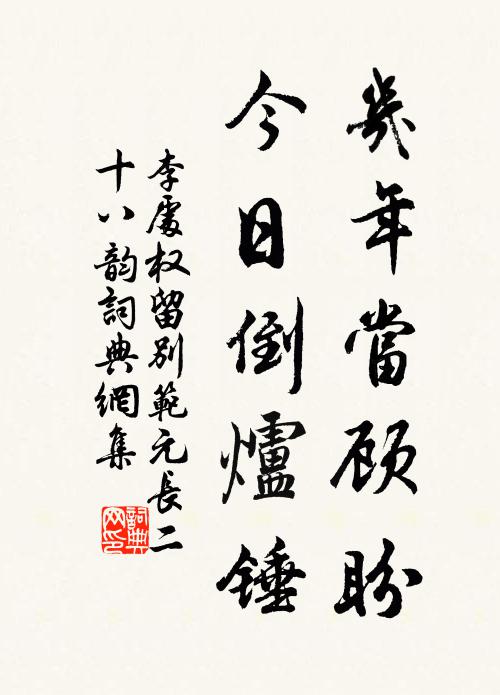 幾年當顧盼
今日倒爐錘
李處权留別範元長二
十八韵詞典網集
詞典网印